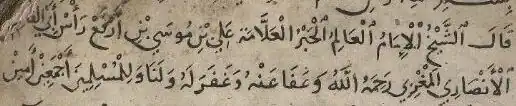 قَالَ ٱلشَّيْخُ ٱلْإِمَامُ ٱلْعَالِمُ ٱلْحَبْرُ ٱلْعَلَّامَةُ عَلِيُّ بْنُ مُوسَى بْنِ أَرْفَعَ رَأْسَ
ٱلْأَنْصَارِيُّ ٱلْمَغْرِبِيُّ رَحِمَهُ ٱللَّهُ وَعَفَا عَنْهُ وَغَفَرَ لَهُ وَلَنَا وَلِلْمُسْلِمِينَ أَجْمَعِينَ أَمِينَ